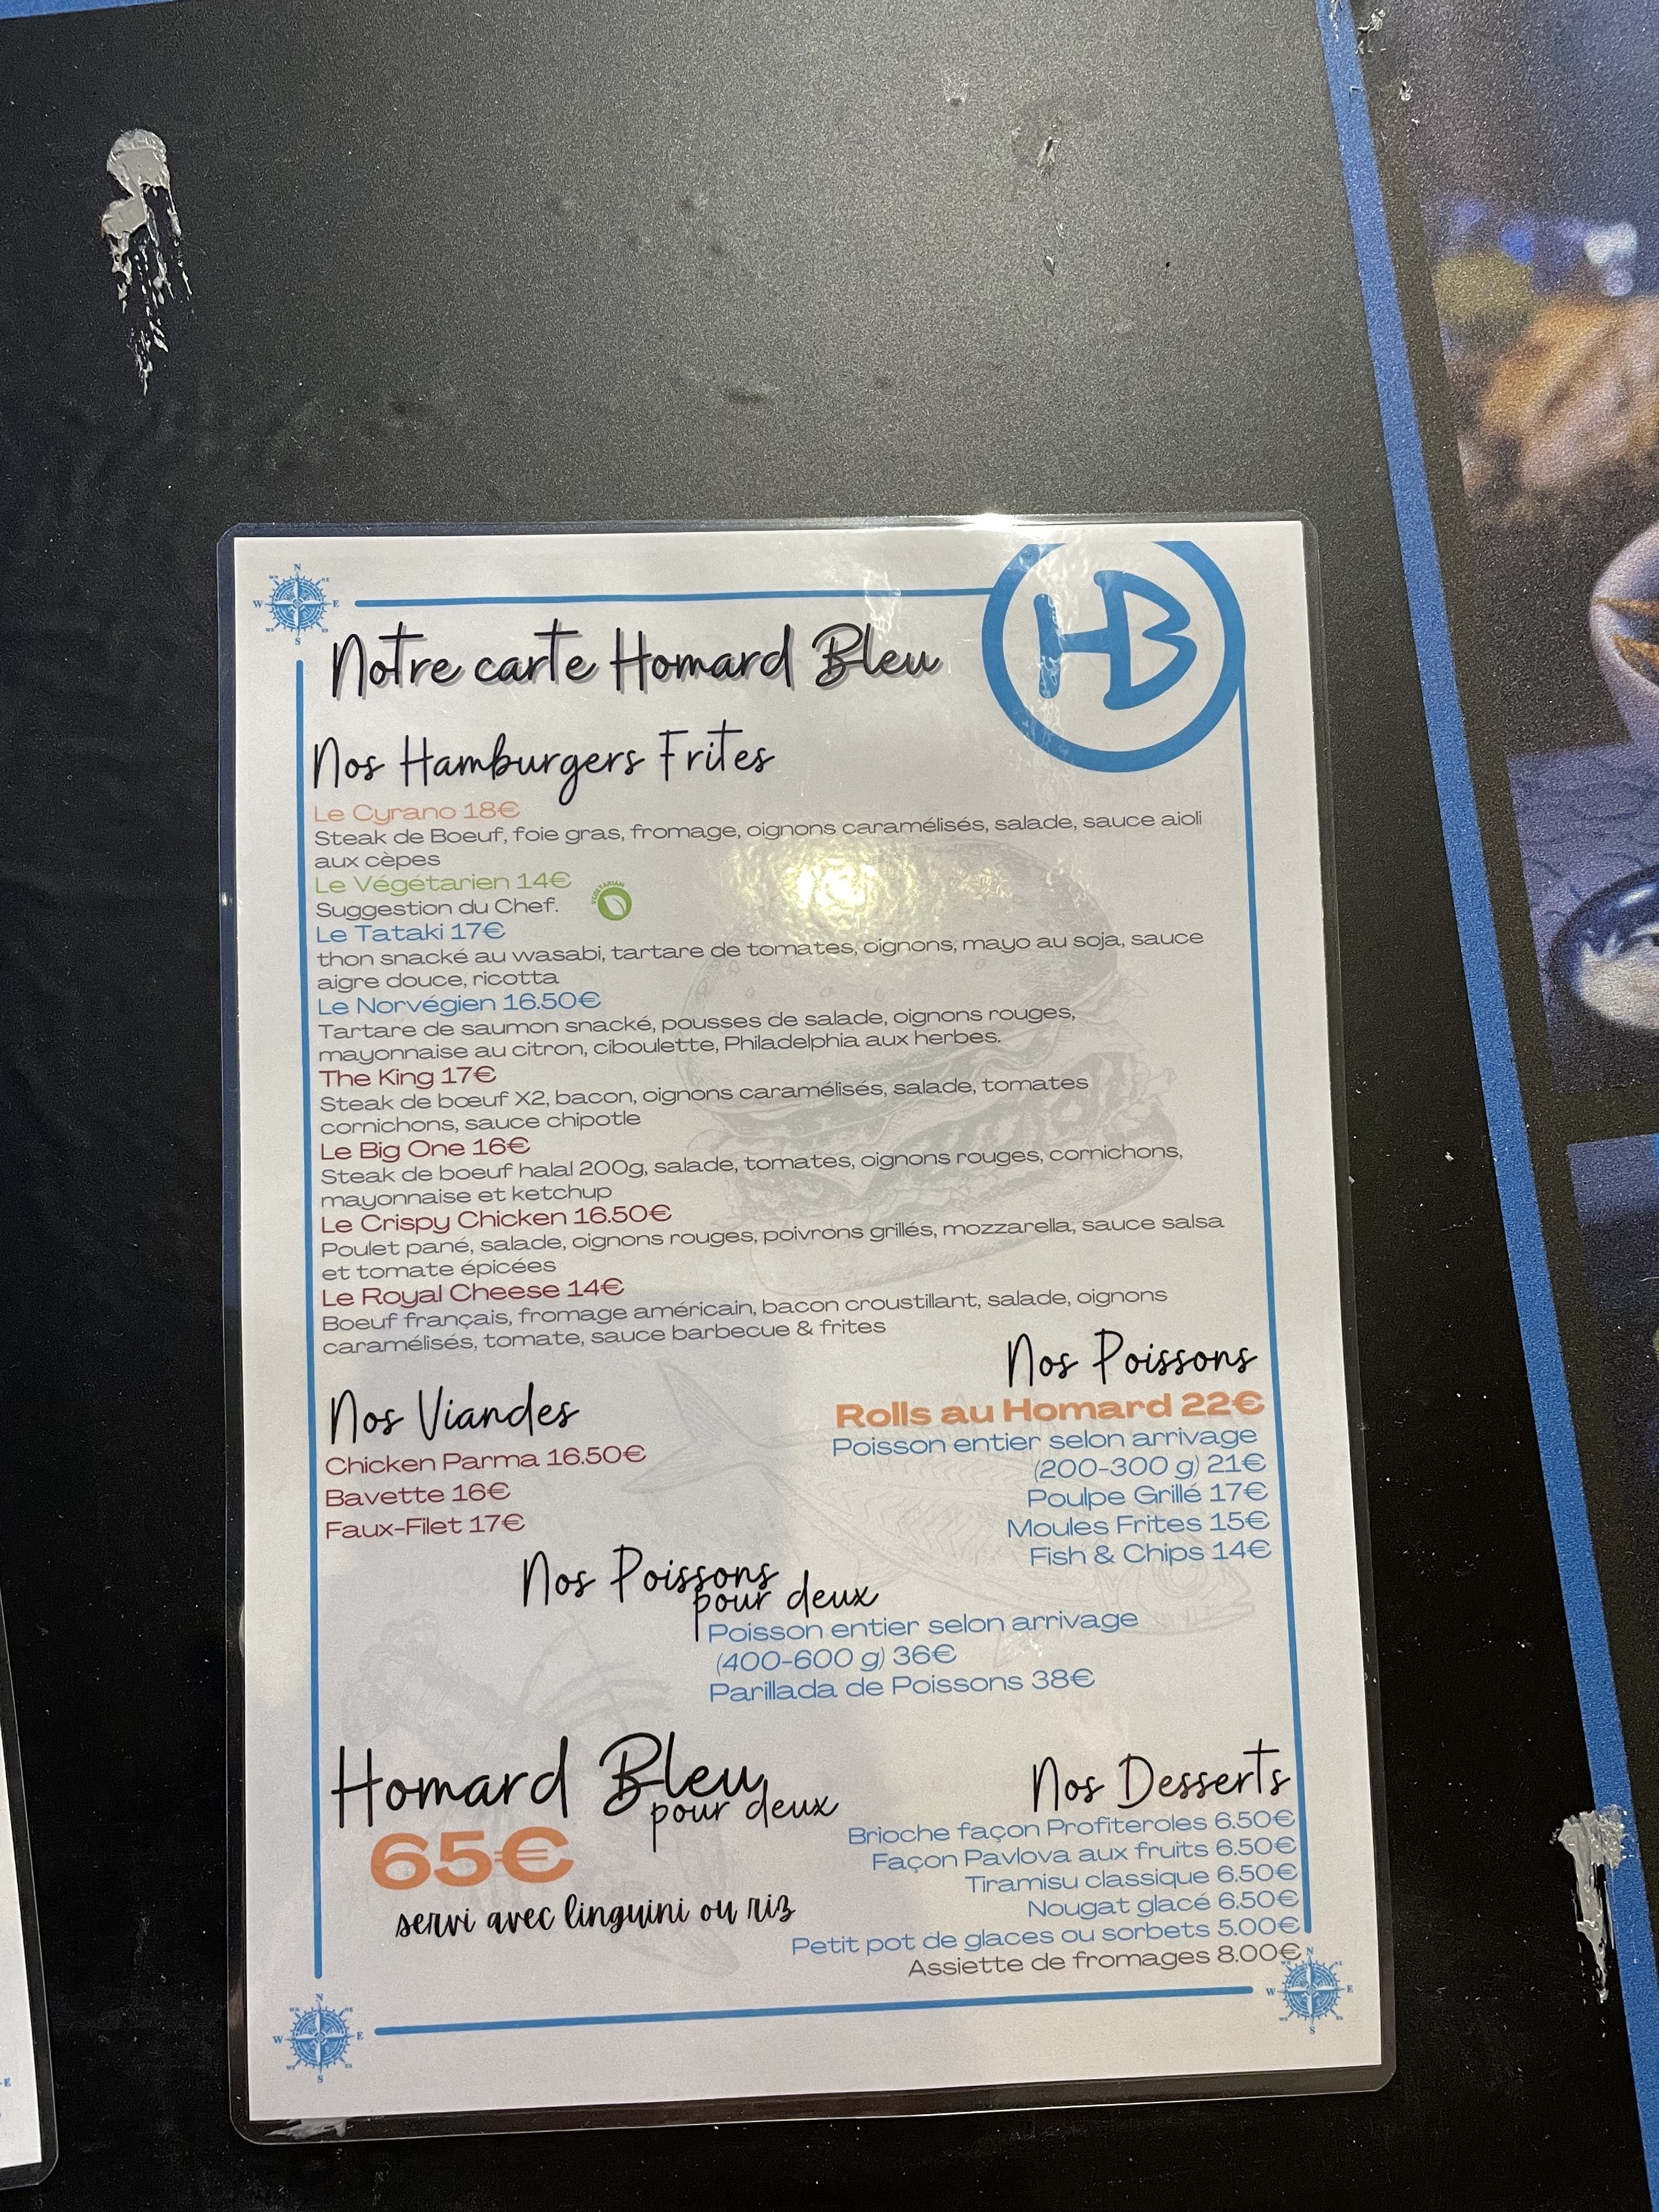 Notre carte Homard Bleu
HB
Nos Hamburgers Frites
Le Cyrano 18€
Steak de Boeuf, foie gras, fromage, oignons caramélisés, salade, sauce aioli
aux cèpes
Le Végétarien 14€
VEGETARIAN
Suggestion du Chef.
Le Tataki 17€
thon snacké au wasabi, tartare de tomates, oignons, mayo au soja, sauce
aigre douce, ricotta
Le Norvégien 16.50€
Tartare de saumon snacké, pousses de salade, oignons rouges,
mayonnaise au citron, ciboulette, Philadelphia aux herbes.
The King 17€
Steak de bœuf X2, bacon, oignons caramélisés, salade, tomates
cornichons, sauce chipotle
Le Big One 16€
Steak de boeuf halal 200g, salade, tomates, oignons rouges, cornichons,
mayonnaise et ketchup
Le Crispy Chicken 16.50€
Poulet pané, salade, oignons rouges, poivrons grillés, mozzarella, sauce salsa
et tomate épicées
Le Royal Cheese 14€
Boeuf français, fromage américain, bacon croustillant, salade, oignons
caramélisés, tomate, sauce barbecue & frites
Nos Viandes
Chicken Parma 16.50€
Bavette 16€
Faux-Filet 17€
Nos Poissons
Rolls au Homard 22€
Poisson entier selon arrivage
(200-300 g) 21€
Poulpe Grillé 17€
Moules Frites 15€
Fish & Chips 14€
Nos Poissons
pour deux
Poisson entier selon arrivage
(400-600 g) 36€
Parillada de Poissons 38€
Homard Bleu
pour deux
65€
servi avec linguini ou riz
Nos Desserts
Brioche façon Profiteroles 6.50€
Façon Pavlova aux fruits 6.50€
Tiramisu classique 6.50€
Nougat glacé 6.50€
Petit pot de glaces ou sorbets 5.00€
Assiette de fromages 8.00€